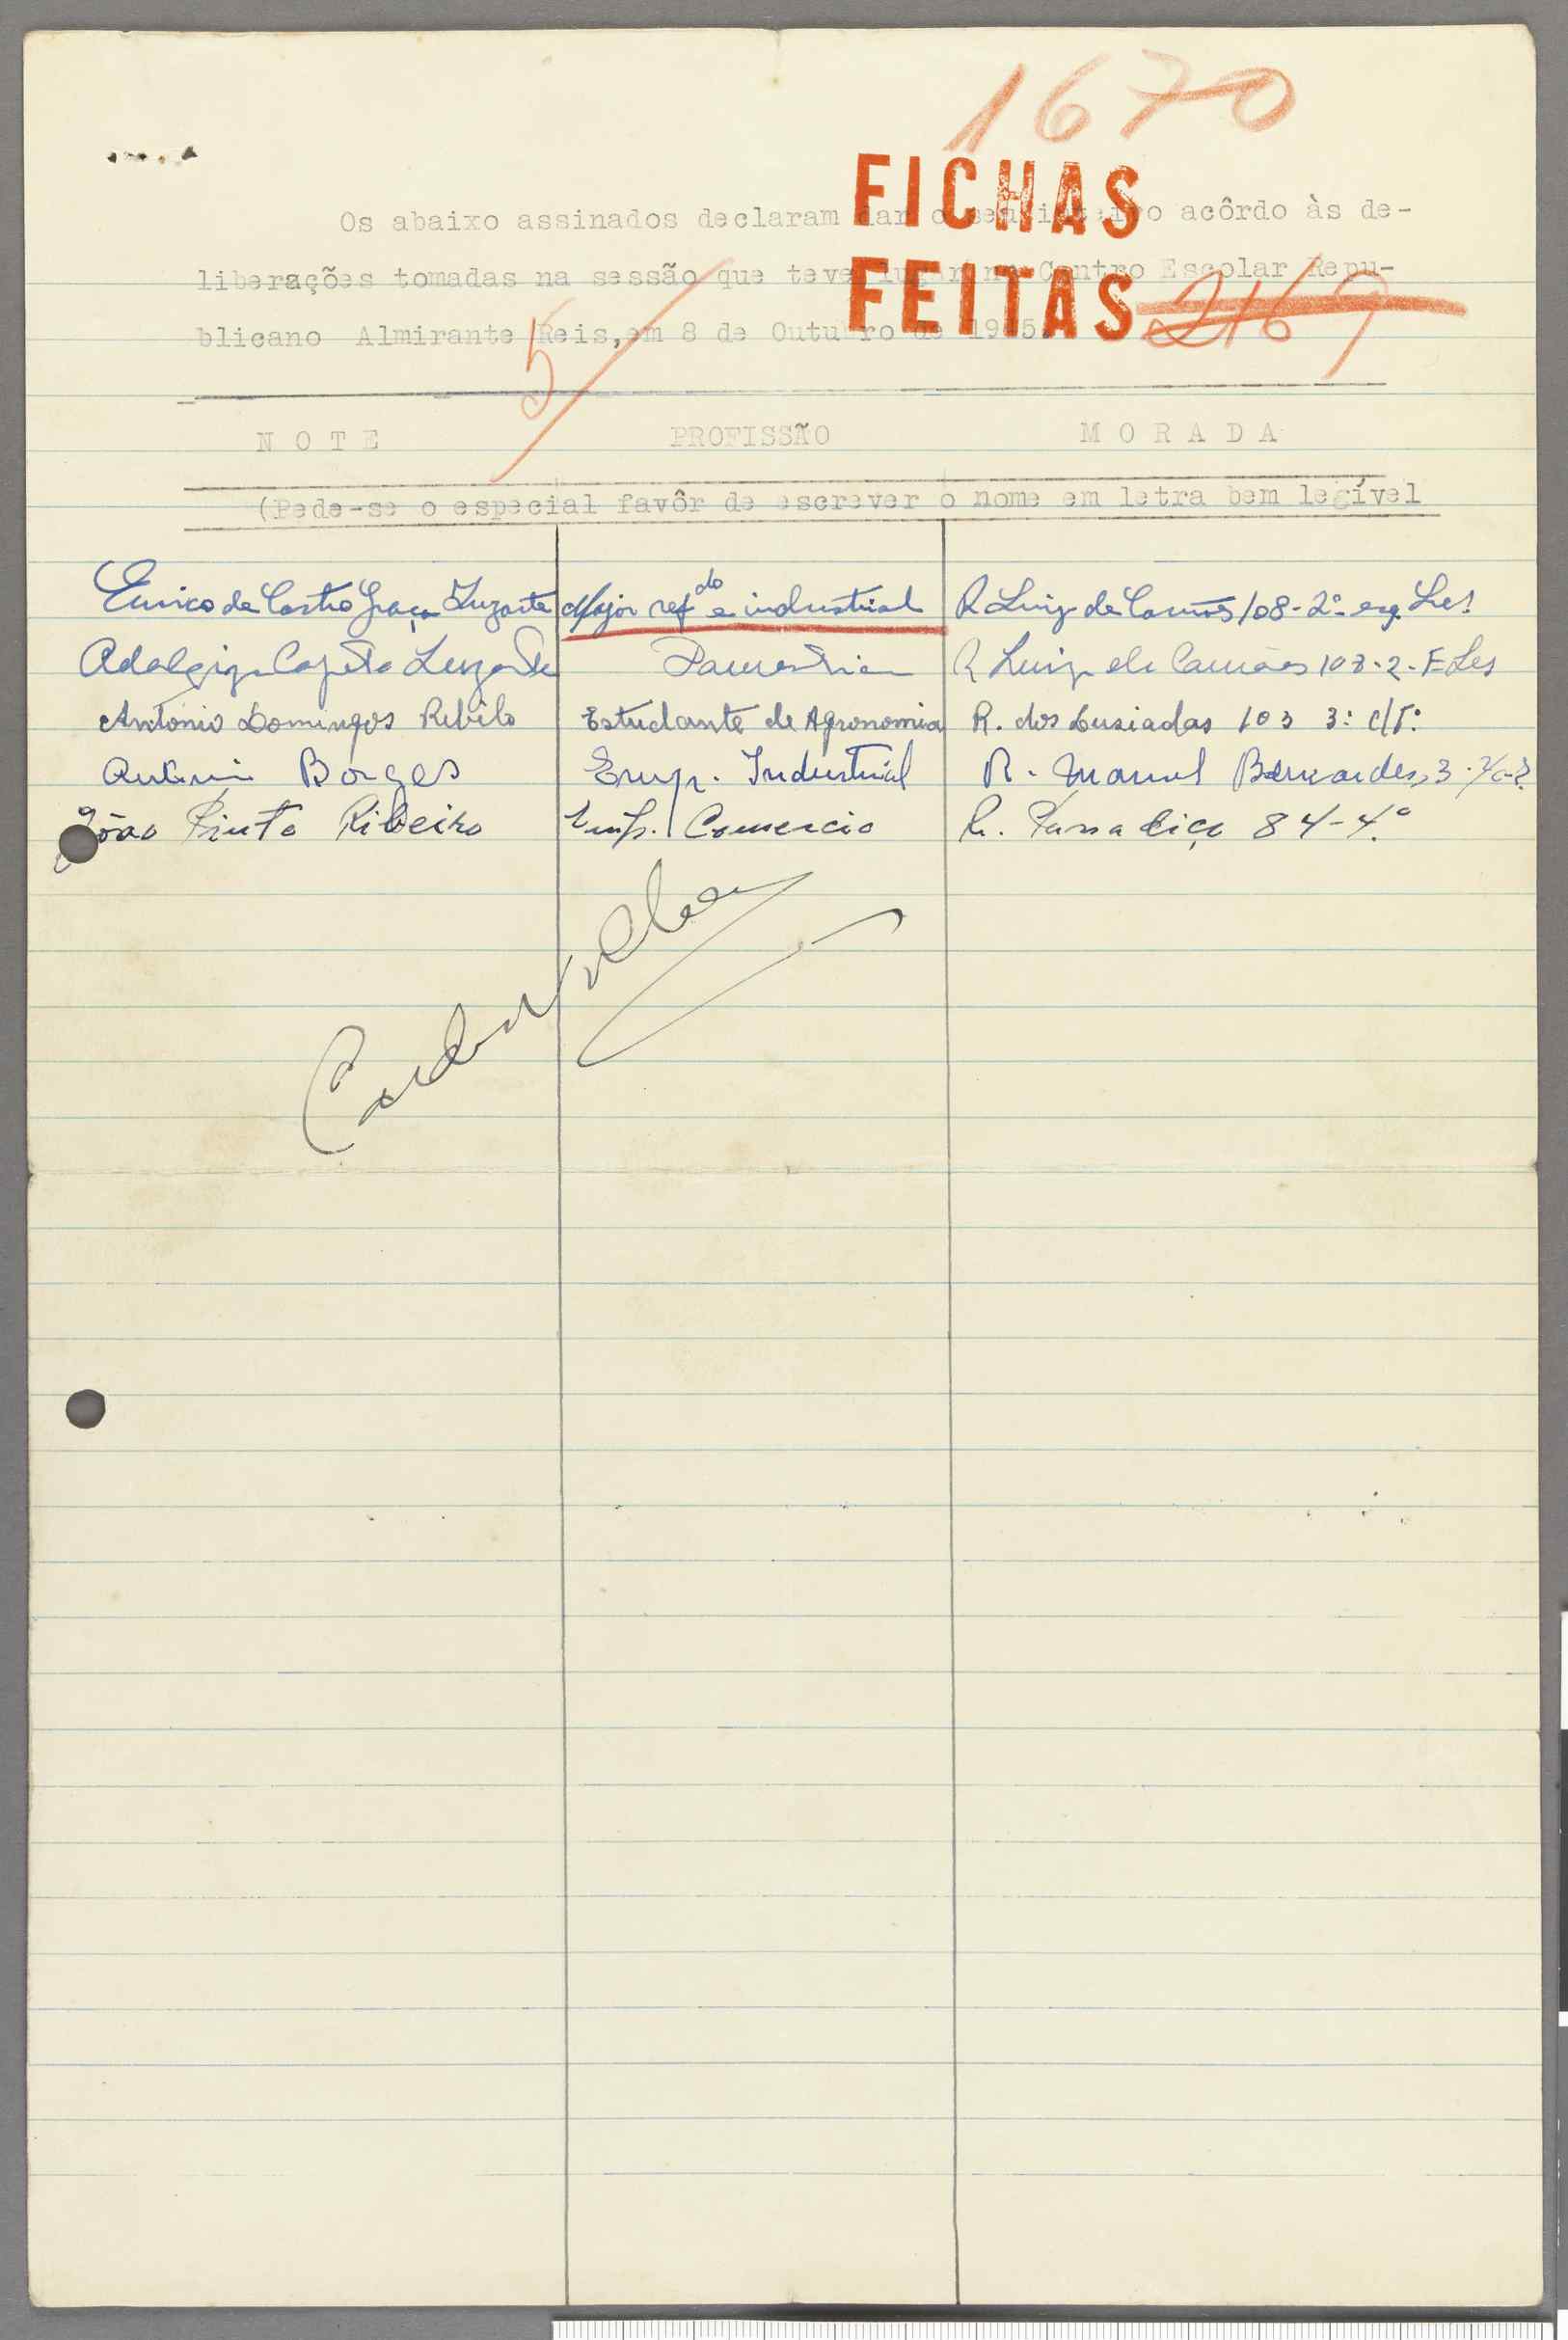 1670
FICHAS
FEITAS
2167
Os abaixo assinados declaram dar o seu inteiro acôrdo às de-
liberações tomadas na sessão que teve lugar no Centro Escolar Repu-
blicano Almirante Reis, em 8 de Outubro de 1945.
5
N O T E PROFISSÃO M O R A D A
(Pede-se o especial favôr de escrever o nome em letra bem legível
Eurico de Castro Graça Luzarte Major ref.do e industrial R Luiz de Camões 108-2º esq. Les.
Adalgiza Luzarte Domestica R Luiz de Camões 108-2-E Les
António Domingos Rebelo Estudante de Agronomia R. dos Lusiadas 103 3º
António Borges Emp. Industrial R. Manuel Bernardes, 3
João Pinto Ribeiro Emp. Comercio R. Passadiço 84-4º